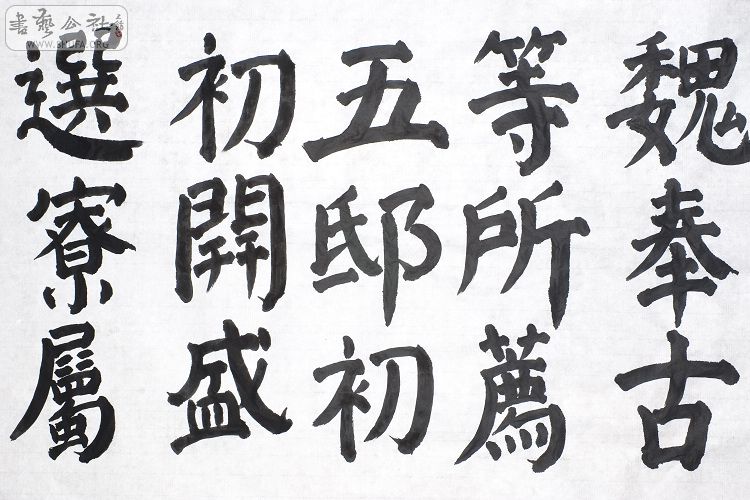 魏奉古
等所薦
五邸初
初開盛
選寮屬
書藝公社
WWW.SHUFA.ORG